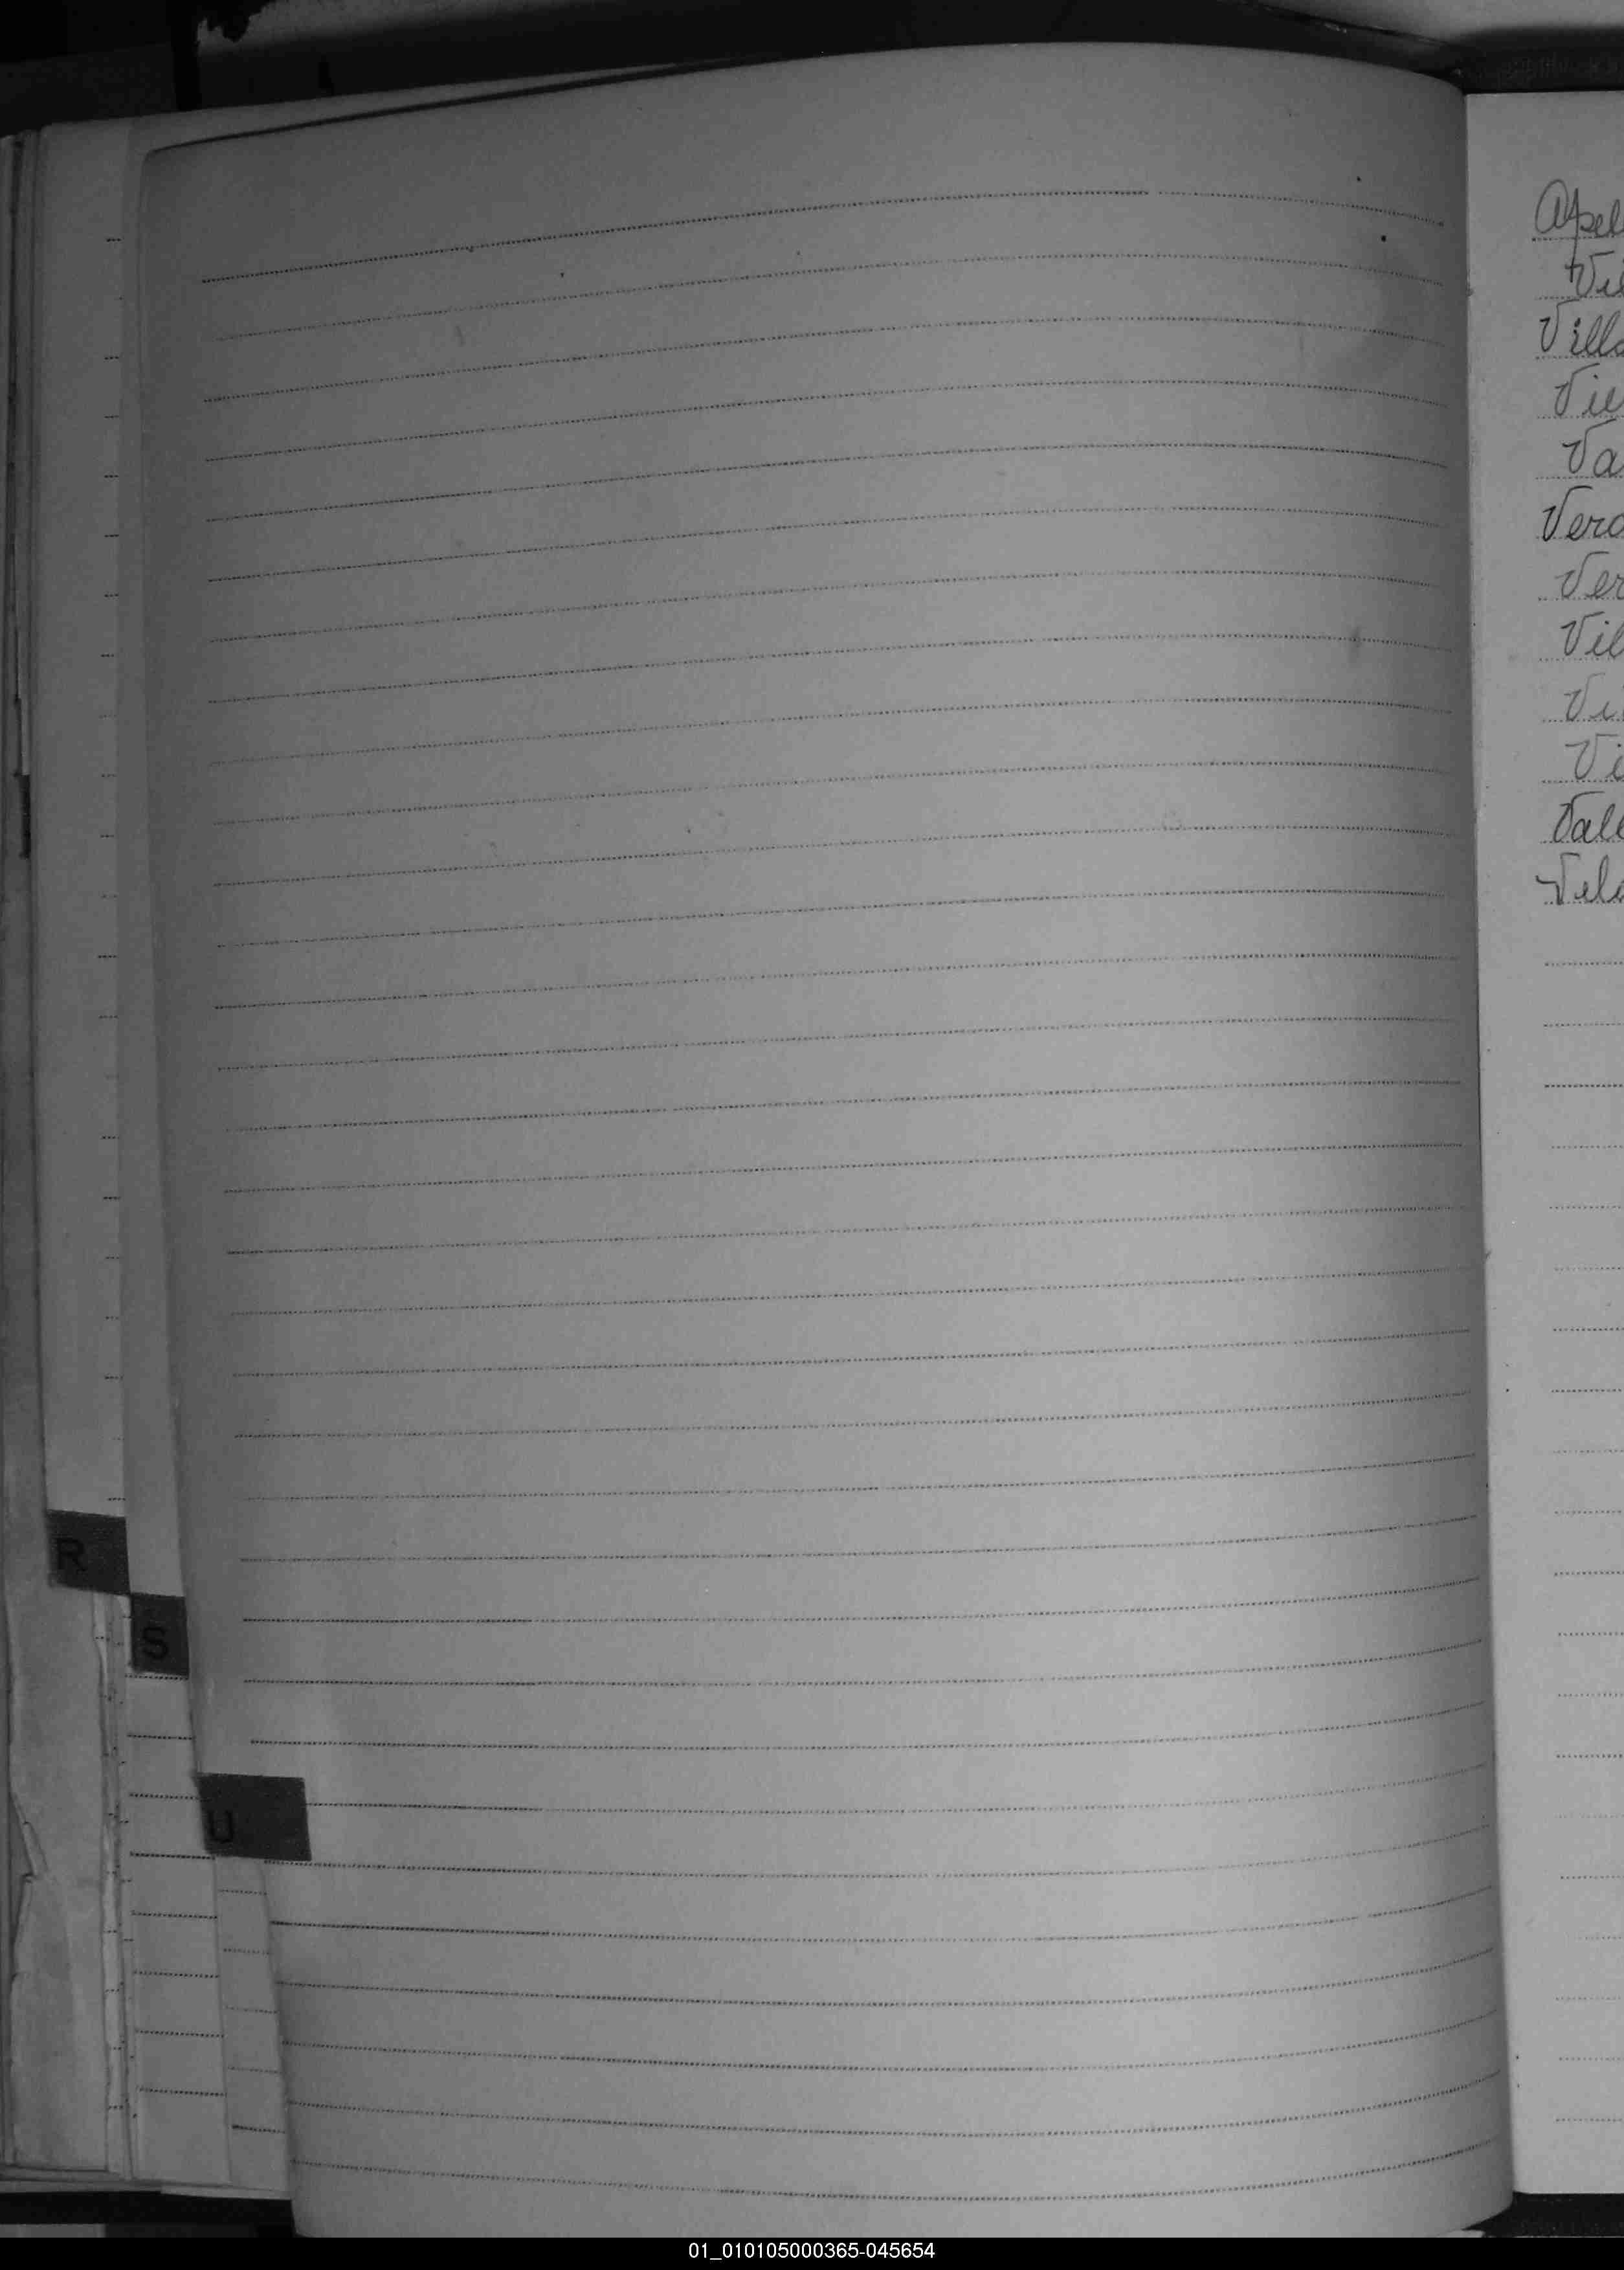 Apel
Vi
Villa
Vie
Va
Verd
Ver
Vil
Vi
Vi
Vall
Vela
R
S
U
01_010105000365-045654